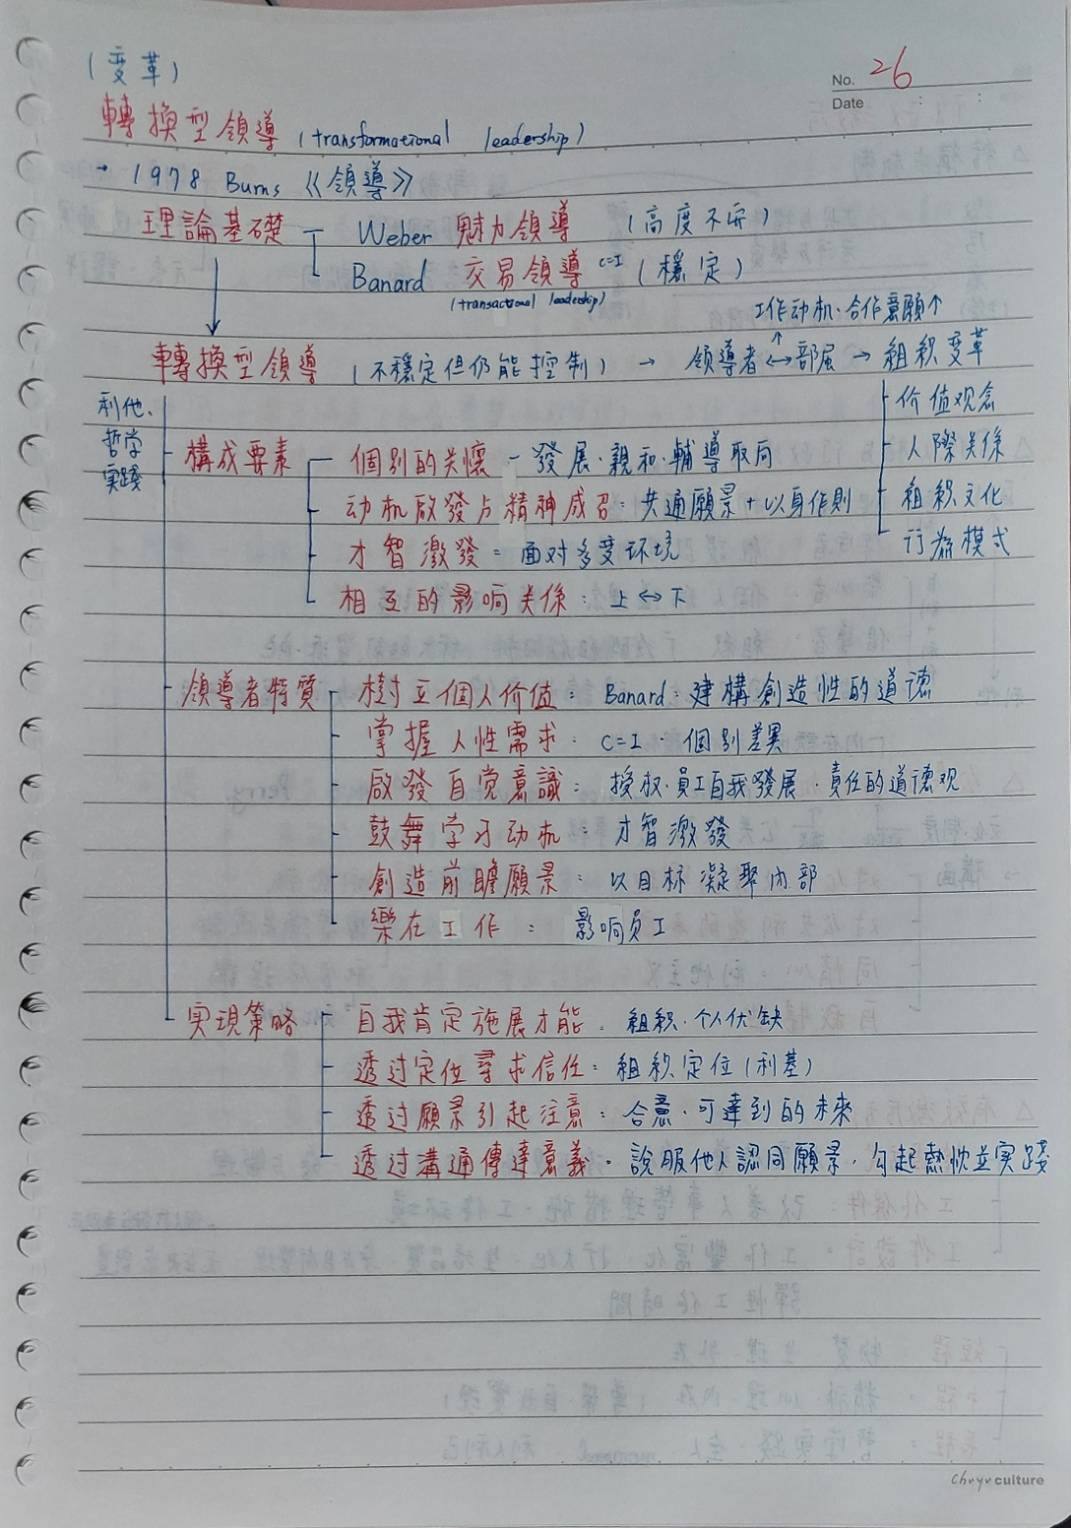 (变革)
No. 26
Date : :
轉換型領導 (transformational leadership)
→ 1978 Burns 《領導》
理論基礎 Weber 魅力領導 (高度不安)
Banard 交易領導 C=I (穩定)
(transactional leadership)
工作动机、合作意願↑
轉換型領導 (不穩定但仍能控制) → 領導者↔部屬 → 組织变革
利他、
哲学
实践
价值观念
構成要素 個別的关懷 - 發展、親和、輔導取向 人際关係
动机啟發与精神感召:共通願景+以身作則 組织文化
才智激發:面对多变环境 行為模式
相互的影响关係:上↔下
領導者特質 樹立個人价值:Banard:建構創造性的道德
掌握人性需求:C=I、個別差異
啟發自觉意識:授权、員工自我發展、責任的道德观
鼓舞学习动机:才智激發
創造前瞻願景:以目标凝聚内部
樂在工作:影响员工
实現策略 自我肯定施展才能:組织、个人优缺
透过定位尋求信任:組织定位(利基)
透过願景引起注意:合意、可達到的未來
透过溝通傳達意義:說服他人認同願景、勾起熱忱並实踐
Chuyu culture